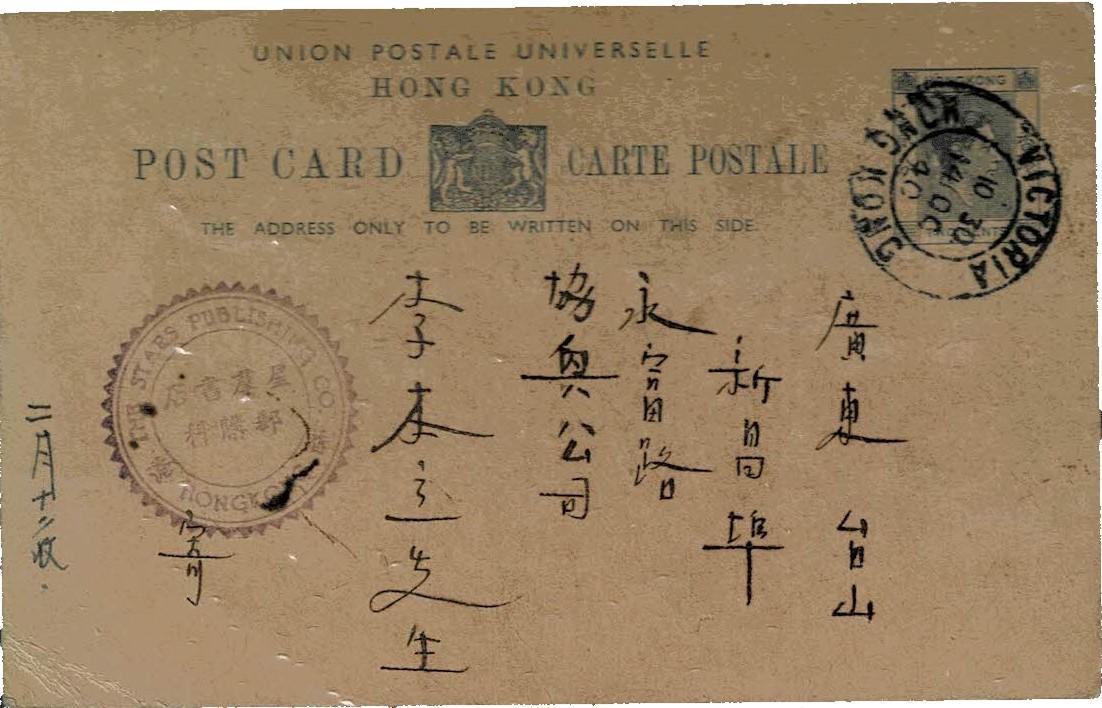 UNION POSTALE UNIVERSELLE
HONG KONG
POST CARD
CARTE POSTALE
THE ADDRESS ONLY TO BE WRITTEN ON THIS SIDE.
HONGKONG
VICTORIA
HONG KONG
10 30
14 OC
40
廣東台山
新昌埠
永富路
協興公司
李本立先生
THE STARS PUBLISHING CO.
星羣書店
HONGKONG
寄
二月十二收.